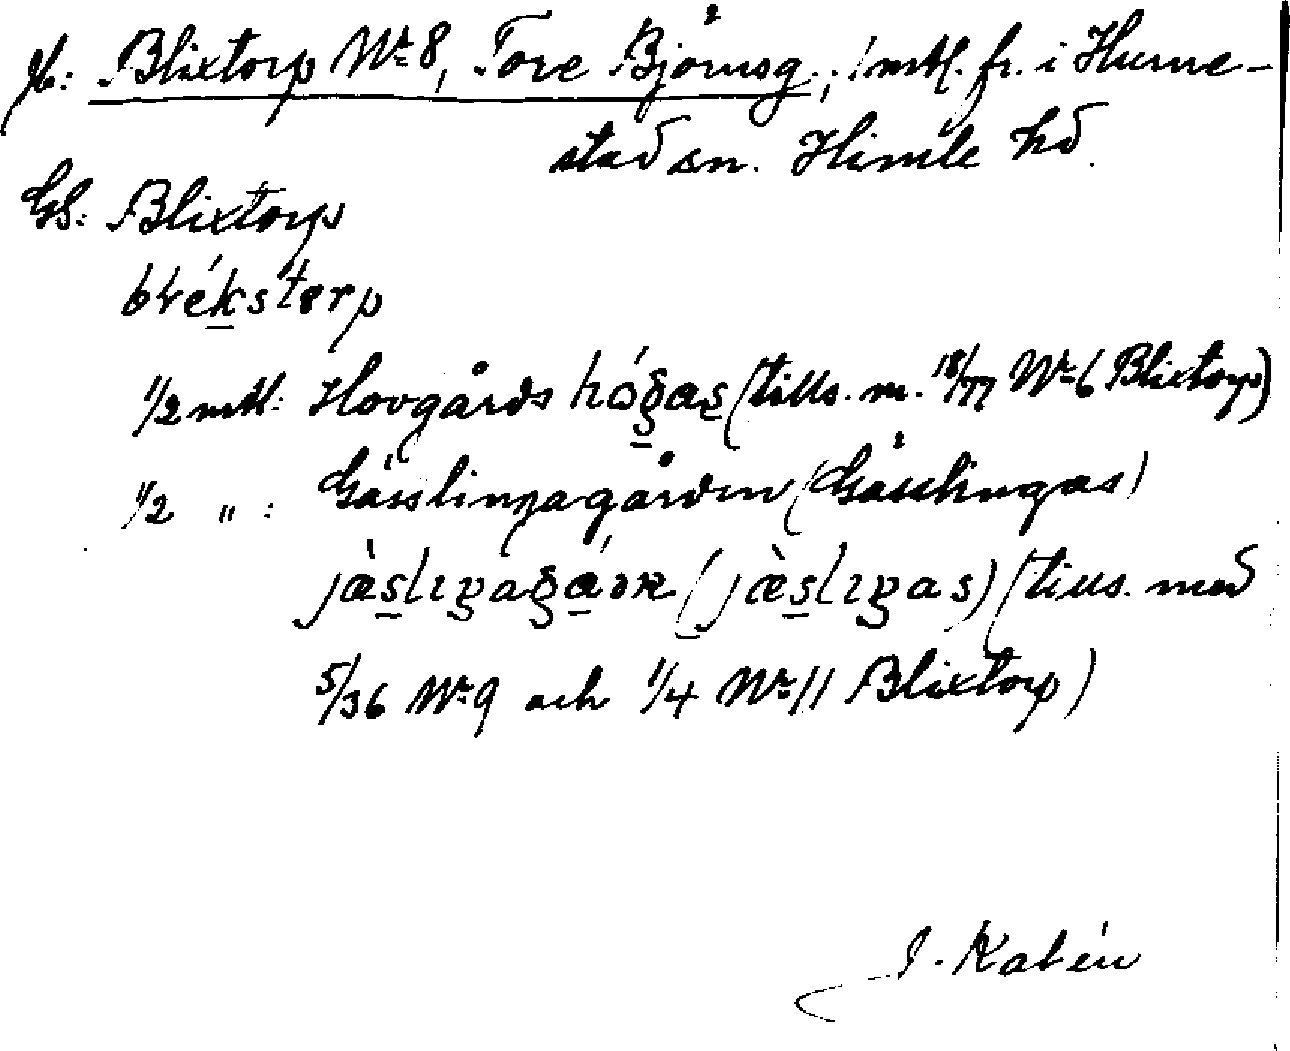 Jb: Blixtorp Nr 8, Tore Björnsg.; 1 mtl. fr. i Hunne-
stad sn. Himle hd.
GS: Blixtorp
blékstorp
1/2 mtl: Hovgårds hógas (tills. m. 18/77 Nr 6 Blixtorp)
1/2 " : Gässlingagården (Gässlingas)
jæ̀slıŋagáɷn (jæ̀slıŋas) (tills. med
5/36 Nr 9 och 1/4 Nr 11 Blixtorp)
J. Kalén